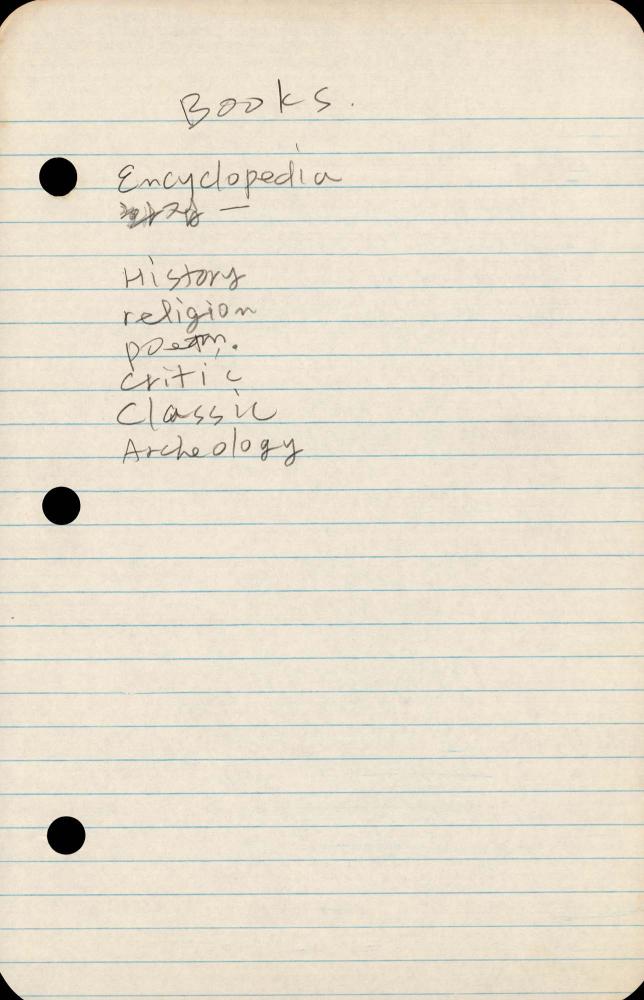 Books.
Encyclopedia
—
History
religion
poetry.
critic
Classic
Archeology